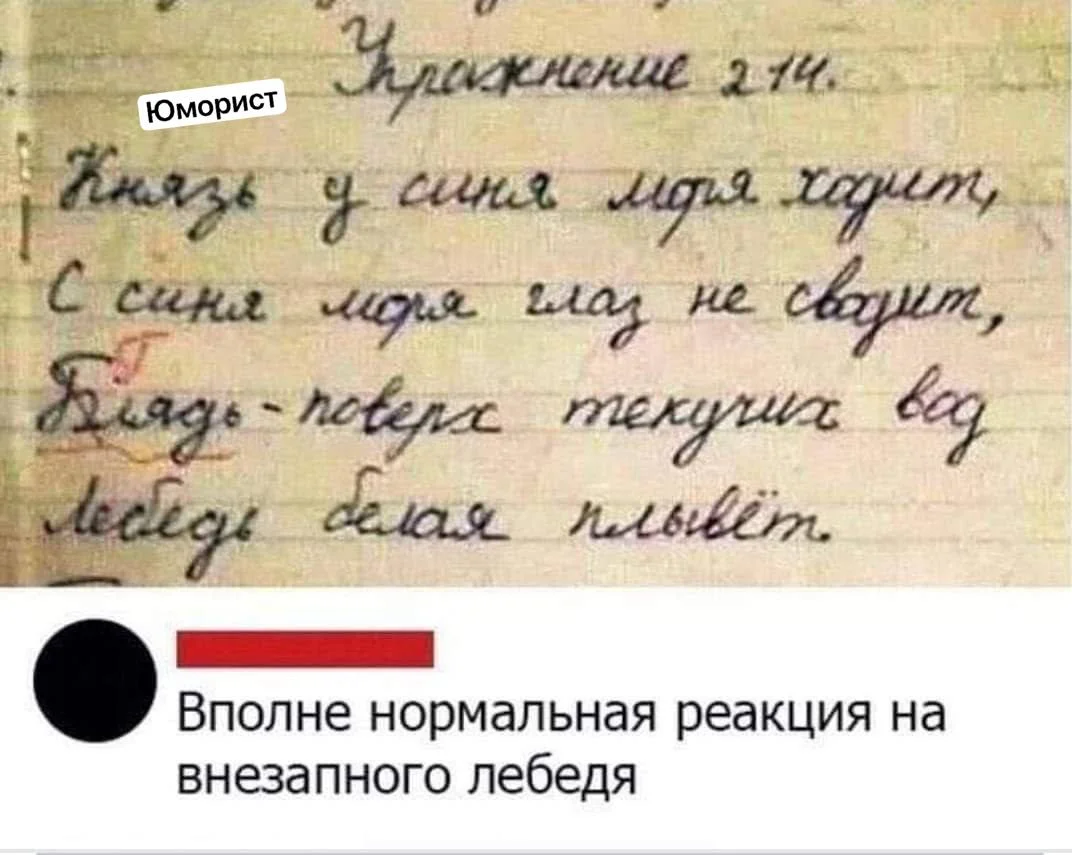 Упражнение 214.
Юморист
Князь у синя моря ходит,
С синя моря глаз не сводит,
Г
Блядь - поверх текучих вод
Лебедь белая плывёт.
Вполне нормальная реакция на
внезапного лебедя